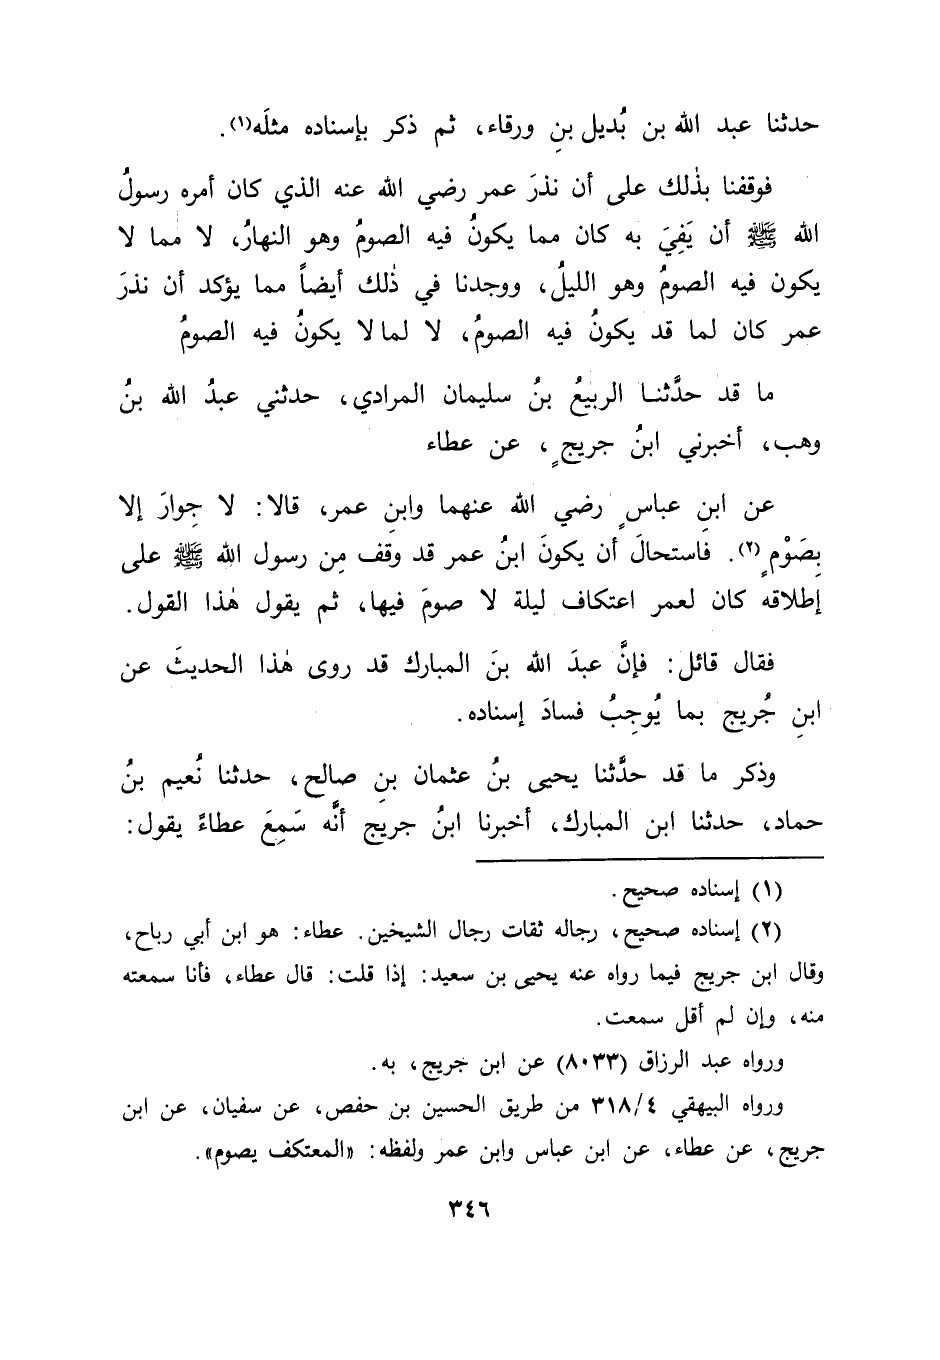 حدثنا عبد الله بن بُديل بنِ ورقاء، ثم ذكر بإسناده مثلَه(١).
فوقفنا بذٰلك على أن نذرَ عمر رضي الله عنه الذي كان أمره رسولُ
الله ﷺ أن يَفِيَ به كان مما يكونُ فيه الصومُ وهو النهارُ، لا مما لا
يكون فيه الصومُ وهو الليلُ، ووجدنا في ذٰلك أيضاً مما يؤكد أن نذرَ
عمر كان لما قد يكونُ فيه الصومُ، لا لما لا يكونُ فيه الصومُ
ما قد حدَّثنا الربيعُ بنُ سليمان المرادي، حدثني عبدُ الله بنُ
وهب، أخبرني ابنُ جريجٍ، عن عطاء
عن ابنِ عباسٍ رضي الله عنهما وابنِ عمر، قالا: لا جِوارَ إلا
بِصَوْمٍ(٢). فاستحالَ أن يكونَ ابنُ عمر قد وقف مِن رسول الله ﷺ على
إطلاقه كان لعمر اعتكاف ليلة لا صومَ فيها، ثم يقول هٰذا القول.
فقال قائل: فإنَّ عبدَ الله بنَ المبارك قد روى هٰذا الحديثَ عن
ابنِ جُريج بما يُوجِبُ فسادَ إسناده.
وذكر ما قد حدَّثنا يحيى بنُ عثمان بنِ صالح، حدثنا نُعيم بنُ
حماد، حدثنا ابن المبارك، أخبرنا ابنُ جريج أنَّه سَمِعَ عطاءً يقول:
(١) إسناده صحيح.
(٢) إسناده صحيح، رجاله ثقات رجال الشيخين. عطاء: هو ابن أبي رباح،
وقال ابن جريج فيما رواه عنه يحيى بن سعيد: إذا قلت: قال عطاء، فأنا سمعته
منه، وإن لم أقل سمعت.
ورواه عبد الرزاق (٨٠٣٣) عن ابن جريج، به.
ورواه البيهقي ٣١٨/٤ من طريق الحسين بن حفص، عن سفيان، عن ابن
جريج، عن عطاء، عن ابن عباس وابن عمر ولفظه: «المعتكف يصوم».
٣٤٦